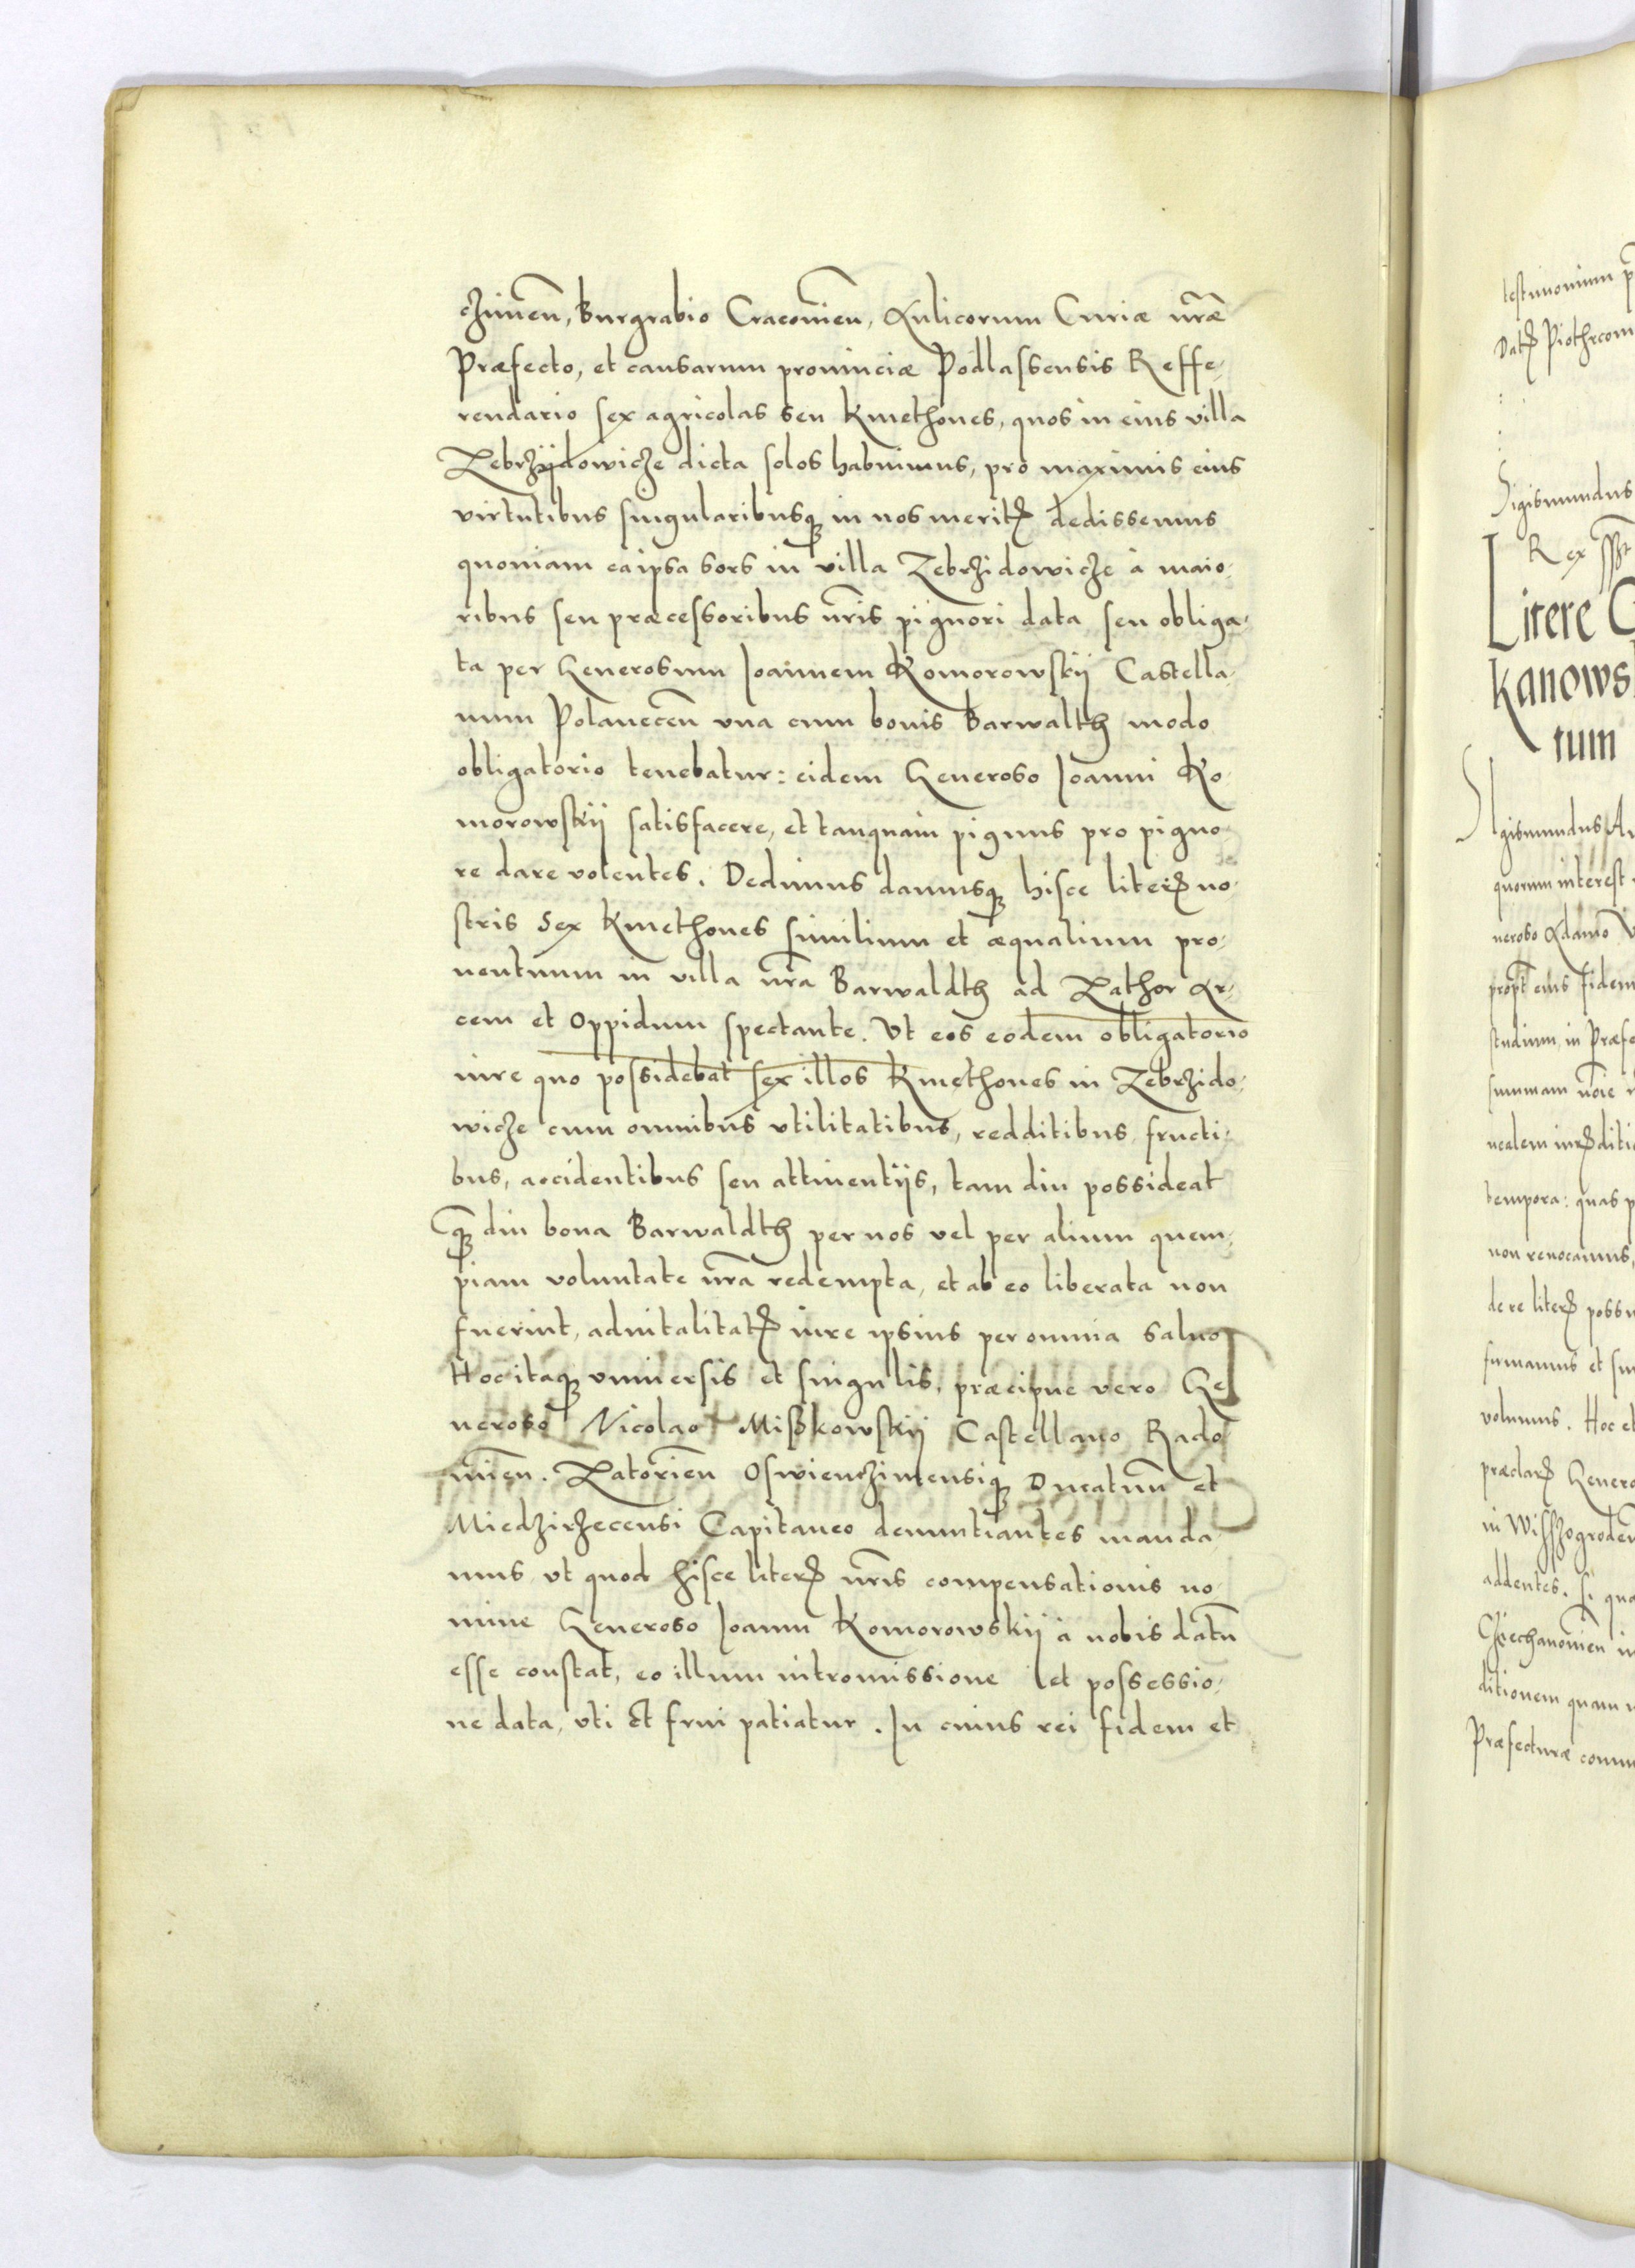 chimeñ, Burgrabio Cracovieñ, Aulicorum Curiæ nr̃æ
Præfecto, et causarum provinciæ Podlassensis Reffe,
rendario sex agricolas seu Kmethones, quos in eius villa
Zebrzÿdowicze dicta solos habuimus, pro maximis eius
virtutibus singularibusq̃ in nos meritꝭ dedissemus
quoniam eaipsa sors in villa Zebrzidowicze à maio,
ribus seu præcessoribus nr̃is pignori data seu obliga,
ta per Generosum Joannem Komorowskÿ Castella,
num Polaneceñ vna cum bonis Barwalth modo
obligatorio tenebatur: eidem Generoso Joanni Ko,
morowskÿ satisfacere, et tanquam pignus pro pigno,
re dare volentes. Dedimus damusq̃ hisce literꝭ no,
stris Sex Kmethones similium et æqualium pro,
uentuum in villa nr̃a Barwaldth ad Zathor Ar,
cem et Oppidum spectante. Vt eos eodem obligatorio
iure quo possidebat sex illos Kmethones in Zebrzido,
wicze cum omnibus vtilitatibus, redditibus fructi,
bus, accidentibus seu attinentÿs, tam diu possideat
q̃ diu bona Barwaldth per nos vel per alium quem,
piam voluntate nr̃a redempta, et ab eo liberata non
fuerint, aduitalitatꝭ iure ipsius per omnia saluo
Hoc itaq̃ vniuersis et singulis, præcipue vero Ge
neroso Nicolao Mißkowskÿ Castellano Rado
mieñ. Zatorieñ Oswienczimensiq̃ Ducatuũ et
Miedzirzecensi Capitaneo denuntiantes manda,
mus, vt quod hisce literꝭ nr̃is compensationis no,
mine Generoso Joanni Komorowskÿ à nobis datũ
esse constat, eo illum intromissione et possessio,
ne data, vti et frui patiatur. In cuius rei fidem et
testimonium
Datꝭ Piothrcom
Sigismundus
Rex
Litere
Kanows
tum
Sigismundus
quorum interest
neroso Adamo
eius fidem
studium, in Præfe
summam
tempora: quas p
non reuocamus,
de re literꝭ possu
fumamus et
volumus. Hoc et
præclarꝭ Genero
in Wisszogrodeñ
addentes. Si qua
ditionem quam
Præfecturæ comm